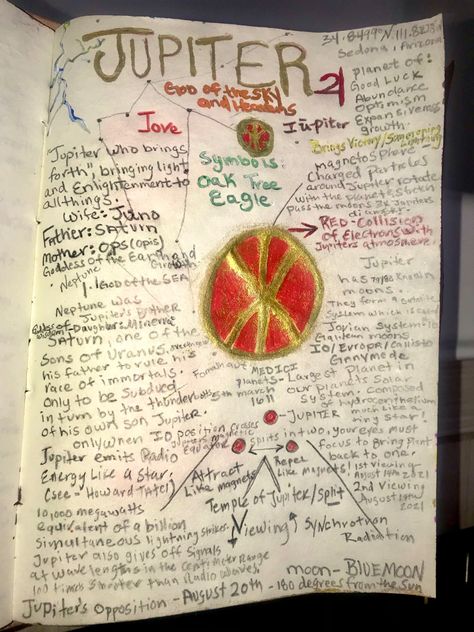 JUPITER ♃
34.8499°N, 111.8
Sedona, Arizona
GOD of the SKY
and Heavens
Jove
Iūpiter
Symbols
Oak Tree
Eagle
planet of:
Good Luck
Abundance
Optimism
Expansiveness
growth
Brings Victory/
magnetosphere -
Charged Particles
around Jupiter rotate
with the planets
past the moons 3x Jupiters
"Jupiter who brings
forth", bringing light
and Enlightenment to
all things.
Wife: Juno
Father: SATURN
Mother: OPS (Opis)
Goddess of the Earth and
Growth
Neptune
1. GOD of the SEA
RED - Collision
of Electrons with
Jupiters atmosphere.
Jupiter
has 79/80 Known
moons.
They form a
System which is
Jovian System-
moons
IO/Europa/Callisto
Gannymede
Neptune was
Jupiter's Father
Daughter Minerva
SATURN, one of the
Sons of Uranus.
his father to rule his
race of immortals.
Only to be Subdued
in turn by the thunderbolts
of his own son Jupiter.
Fomalhaut
MEDICI
planets-
march
1611
Largest Planet in
our planets Solar
System, composed
much like a
ring Star!
- JUPITER
only when IO position crosses
Jupiters magnetic
Equator
Splits in two, your eyes must
focus to Bring Planet
back to one.
1st Viewing
August 14th 2021
2nd Viewing
August
2021
Jupiter emits Radio
Energy Like a Star.
(see = Howard TATEL)
Attract
Like magnets
Repel
Like Magnets!
Temple of Jupiter/Split
Viewing
Synchrotron
Radiation
10,000 megawatts
equivalent of a billion
Simultaneous lightning strikes
Jupiter also gives off Signals
at wavelengths in the Centimeter Range
100 times shorter than Radio waves.
moon-BLUEMOON
Jupiters Opposition - August 20th - 180 degrees from the Sun